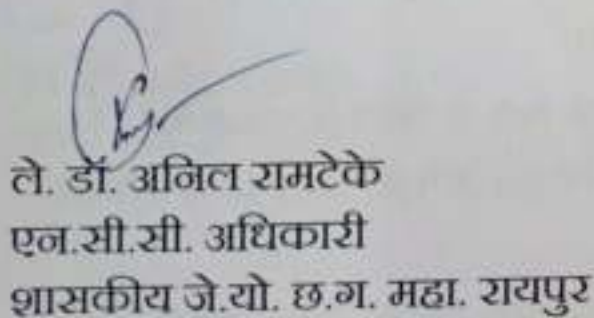 ले. डॉ. अनिल रामटेके
एन.सी.सी. अधिकारी
शासकीय जे.यो. छ.ग. महा. रायपुर